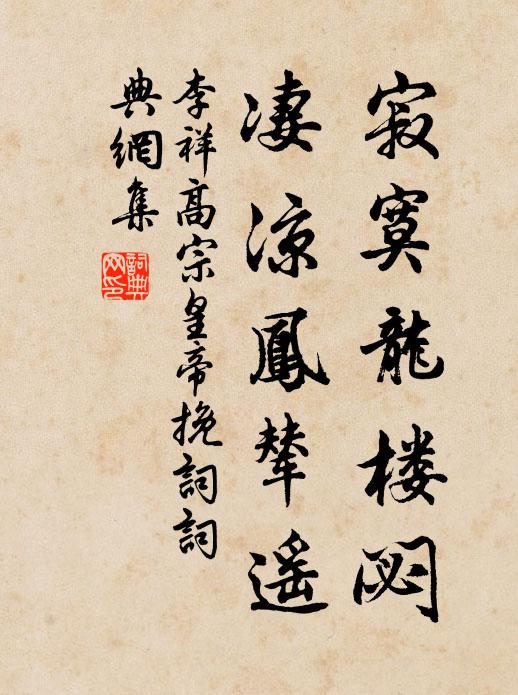 寂寞龍楼閟
凄涼鳳輦遥
李祥高宗皇帝挽詞詞
典網集
詞典
网印